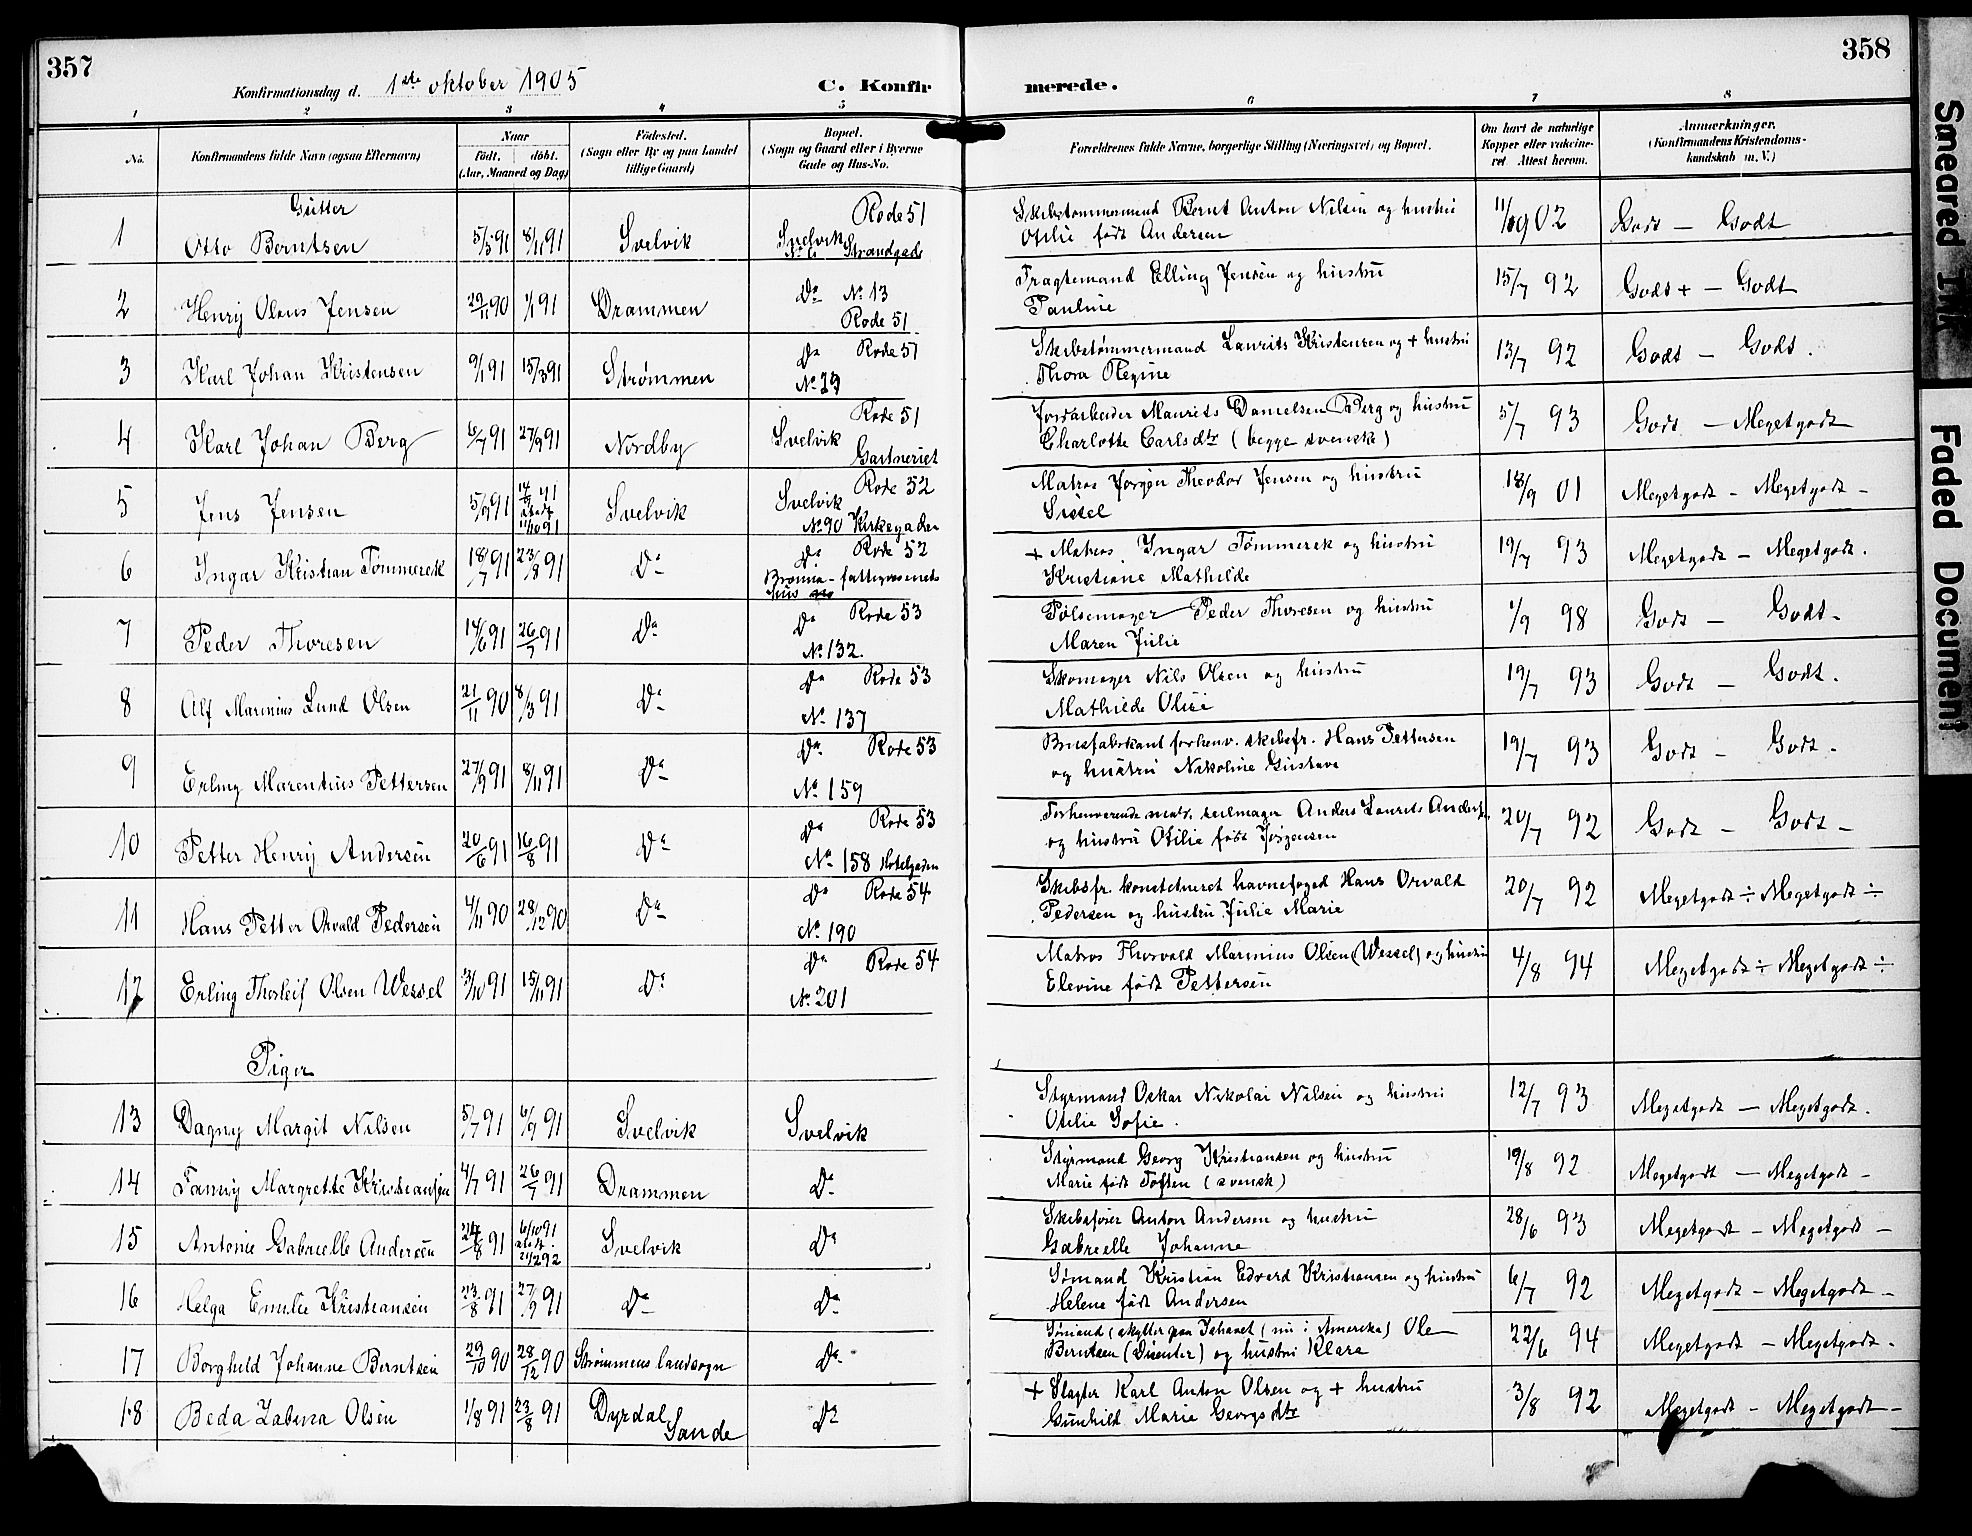 357
358
Konfirmationsdag d. 1ste oktober 1905
C. Konfir
merede.
1 2 3 4 5 6 7 8
No.
Konfirmandens fulde Navn (ogsaa Efternavn)
Naar
født. døbt.
(Aar, Maaned og Dag)
Fødested.
(Sogn eller By og paa Landet
tillige Gaard)
Bopæl.
(Sogn og Gaard eller i Byerne
Gade og Hus-No.
Forældrenes fulde Navne, borgerlige Stilling (Næringsvei) og Bopæl.
Om havt de naturlige
Kopper eller vakcine-
ret Attest herom.
Anmærkninger.
(Konfirmandens Kristendoms-
kundskab m. V.)
Gutter
1 Otto Berntsen 5/5 91 8/11 91 Svelvik Svelvik Rode 51 Strandgade
Skibstømmermand Bernt Anton Nilsen og hustru
Otilie født Andersen
Godt — Godt
2 Henrij Olaus Jensen 29/11 90 1/1 91 Drammen Do No 13
Rode 51
Fragtemand Elling Jensen og hustru
Pauline
15/7 92 Godt + — Godt
3 Karl Johan Kristensen 9/1 91 15/3 91 Strømmen Do Rode 51
No 29
Skibstømmermand Laurits Kristensen og + hustru
Thora Olegine
13/7 92 Godt — Godt.
4 Karl Johan Berg 6/7 91 27/9 91 Nordby Svelvik Rode 51
Gartneriet
Jordarbeider Maurits Danielsen Berg og hustru
Charlotte Carlsdtr (begge svensk)
5/7 93 Godt — Megetgodt
5 Jens Jensen 5/9 91 Svelvik Svelvik Rode 52
No 90 Kirkegaden
Matros Jørgen Theodor Jensen og hustru
Sissel
18/9 01 Megetgodt — Megetgodt —
6 Ingar Kristian Tømmerek 18/7 91 23/8 91 Do Do Rode 52
fattigvæsenets
hus
+ Matros Ingar Tømmerek og hustru
Kristiane Mathilde
19/7 93 Megetgodt — Megetgodt.
7 Peder Thoresen 14/6 91 26/7 91 Do Do Rode 53
No 132.
Pølsemager Peder Thoresen og hustru
Maren Julie
1/9 98 Godt — Godt —
8 Alf Marinius Lund Olsen 21/11 90 8/3 91 Do Do Rode 53
No 137
Skomager Nils Olsen og hustru
Mathilde Olise
19/7 93 Godt — Godt.
9 Erling Marentius Pettersen 27/9 91 8/11 91 Do Do Rode 53
No 159
Brusfabrikant forhenv. skibsfr. Hans Pettersen
og hustru Nikoline Gustava
19/7 93 Godt — Godt —
10 Petter Henrij Andersen 20/6 91 16/8 91 Do Do Rode 53
No 158 Hotelgaden
Forhenværende matr. seilmager Anders Laurits Anders.
og hustru Otilie født Jørgensen
20/7 92 Godt — Godt —
11 Hans Petter Orvald Pedersen 4/11 90 28/12 90 Do Do Rode 54
No 190
Skibsfr. konstitueret havnefoged Hans Orvald
Pedersen og hustru Julie Marie
20/7 92 Megetgodt ÷ Megetgodt ÷
12 Erling Thorleif Olsen Wessel 3/10 91 15/11 91 Do Do Rode 54
No 201
Matros Thorvald Marinius Olsen (Wessel) og hustru
Elevine født Pettersen
4/8 94 Megetgodt ÷ Megetgodt ÷
Piger
13 Dagny Margit Nilsen 5/7 91 6/9 91 Svelvik Svelvik
Styrmand Oskar Nikolai Nilsen og hustru
Otilie Sofie.
12/7 93 Megetgodt — Megetgodt.
14 Fanny Margrethe Kristiansen 4/7 91 26/7 91 Drammen Do
Styrmand Georg Kristiansen og hustru
Marie født Toften (svensk)
19/8 92 Megetgodt — Megetgodt —
15 Antonie Gabrielle Andersen 24/8 91 6/10 91 Svelvik Do
Skibsfører Anton Andersen og hustru
Gabrielle Johanne
28/6 93 Megetgodt — Megetgodt —
16 Helga Emilie Kristiansen 23/8 91 27/9 91 Do Do
Sømand Kristian Edvard Kristiansen og hustru
Helene født Andersen
6/7 92 Megetgodt — Megetgodt —
17 Borghild Johanne Berntsen 29/10 90 28/12 90 Strømmens landsogn Do
Sømand (nu i Amerika) Ole
Berntsen (Disenter) og hustru Klara
22/6 94 Megetgodt — Megetgodt.
18 Beda Zabina Olsen 1/8 91 23/8 91 Dyrdal Sande Do
+ Slagter Karl Anton Olsen og + hustru
Gunhild Marie Georgsdtr
3/8 92 Megetgodt — Megetgodt —
Smeared Ink
Faded Document